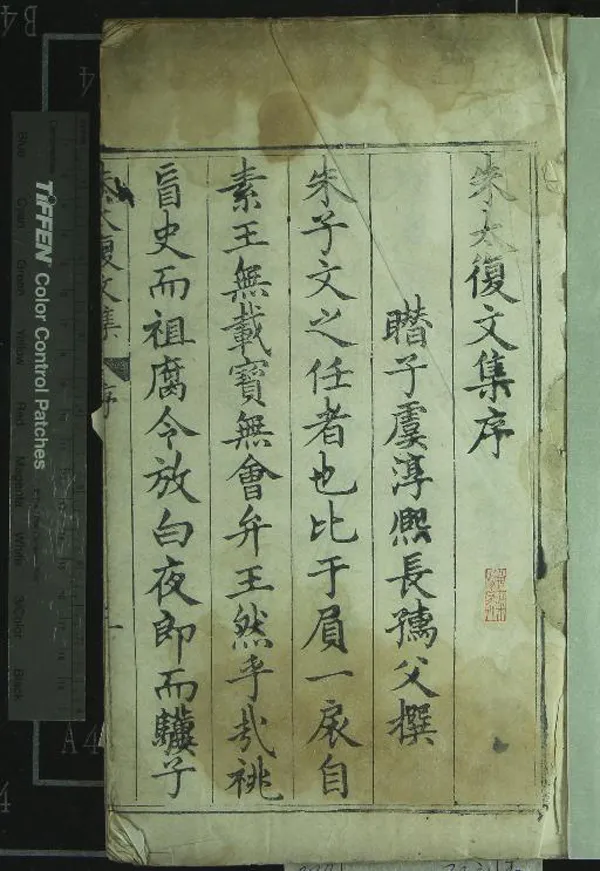 朱太復文集序
瞎子虞淳熙長孺父撰
朱子文之任者也比于員一扆自
素王無載寶無會弁王然乎哉祧
盲史而祖腐令放白夜郎而驥子
太復文集 序 一
TIFFEN Color Control Patches
Blue Cyan Green Yellow Red Magenta White 3/Color Black
B4
4
A4
4